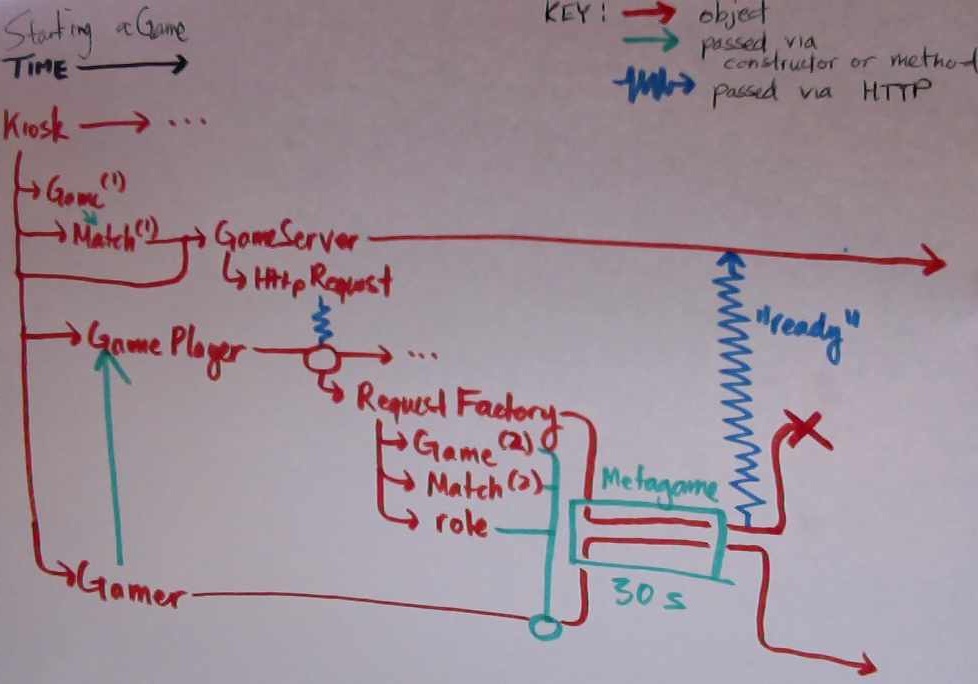 Starting a Game
KEY: object
TIME
passed via
constructor or method
passed via HTTP
Kiosk ...
Game (1)
Match (1)
GameServer
HttpRequest
"ready"
Game Player ...
Request Factory
Game (2)
Match (2)
Metagame
role
Gamer
30 s